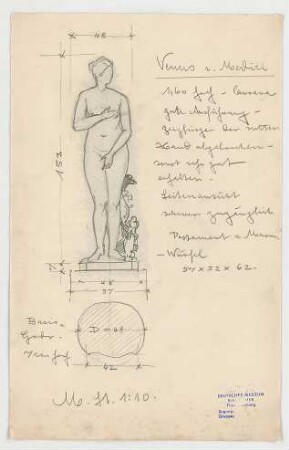 48
Venus v. Medici
1,60 hoch – Carrara
gute Ausführung –
Zeigfinger der rechten
Hand abgebrochen –
sonst sehr gut
erhalten –
Seitenansicht
schwer zugänglich
153
Postament a. Marmor
– Würfel
54 x 52 x 62.
7
48
57
D = 49
62
M. St. 1:10.
DEUTSCHES MUSEUM